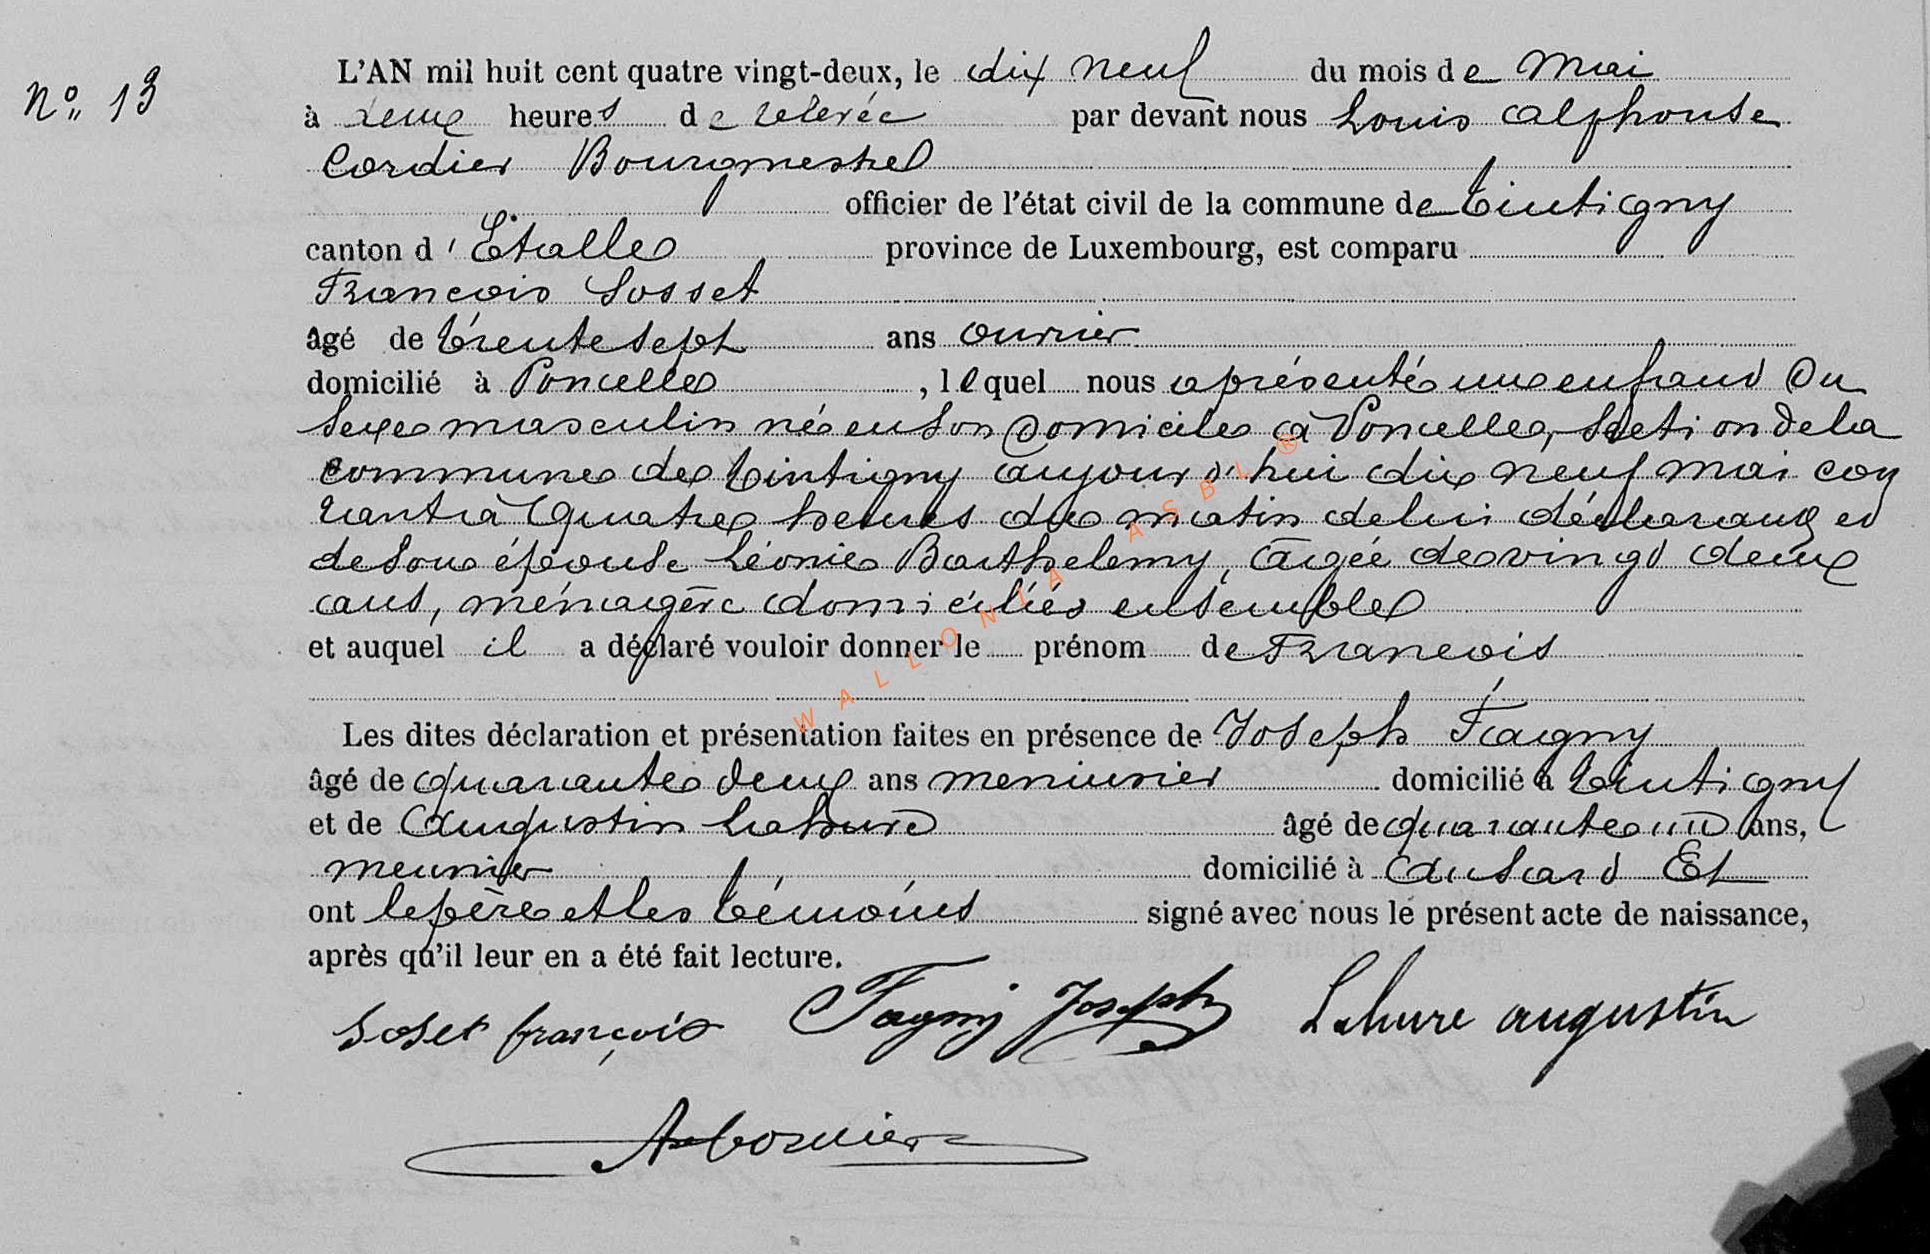 N° 13
L'AN mil huit cent quatre vingt-deux, le dix neuf du mois de Mai
à deux heures de relevée par devant nous Louis Alphonse
Cordier Bourgmestre
officier de l'état civil de la commune de Tintigny
canton d'Etalle province de Luxembourg, est comparu
François Sosset
âgé de trente sept ans ouvrier
domicilié à Poncelle, lequel nous a présenté un enfant du
sexe masculin né en son domicile à Poncelle, section de la
commune de Tintigny aujourd'hui dix neuf mai cou
rant à quatre heures du matin de lui déclarant et
de son épouse Léonie Barthelemy, âgée de vingt deux
ans, ménagère domiciliés ensemble
et auquel il a déclaré vouloir donner le prénom de François
Les dites déclaration et présentation faites en présence de Joseph Fagny
âgé de quarante deux ans menuisier domicilié à Tintigny
et de Augustin Lahure âgé de quarante un ans,
meunier domicilié à Ansart Et
ont le père et les témoins signé avec nous le présent acte de naissance,
après qu'il leur en a été fait lecture.
Soset françois Fagny Joseph Lahure augustin
A Cordier
WALLONIA ASBL ®